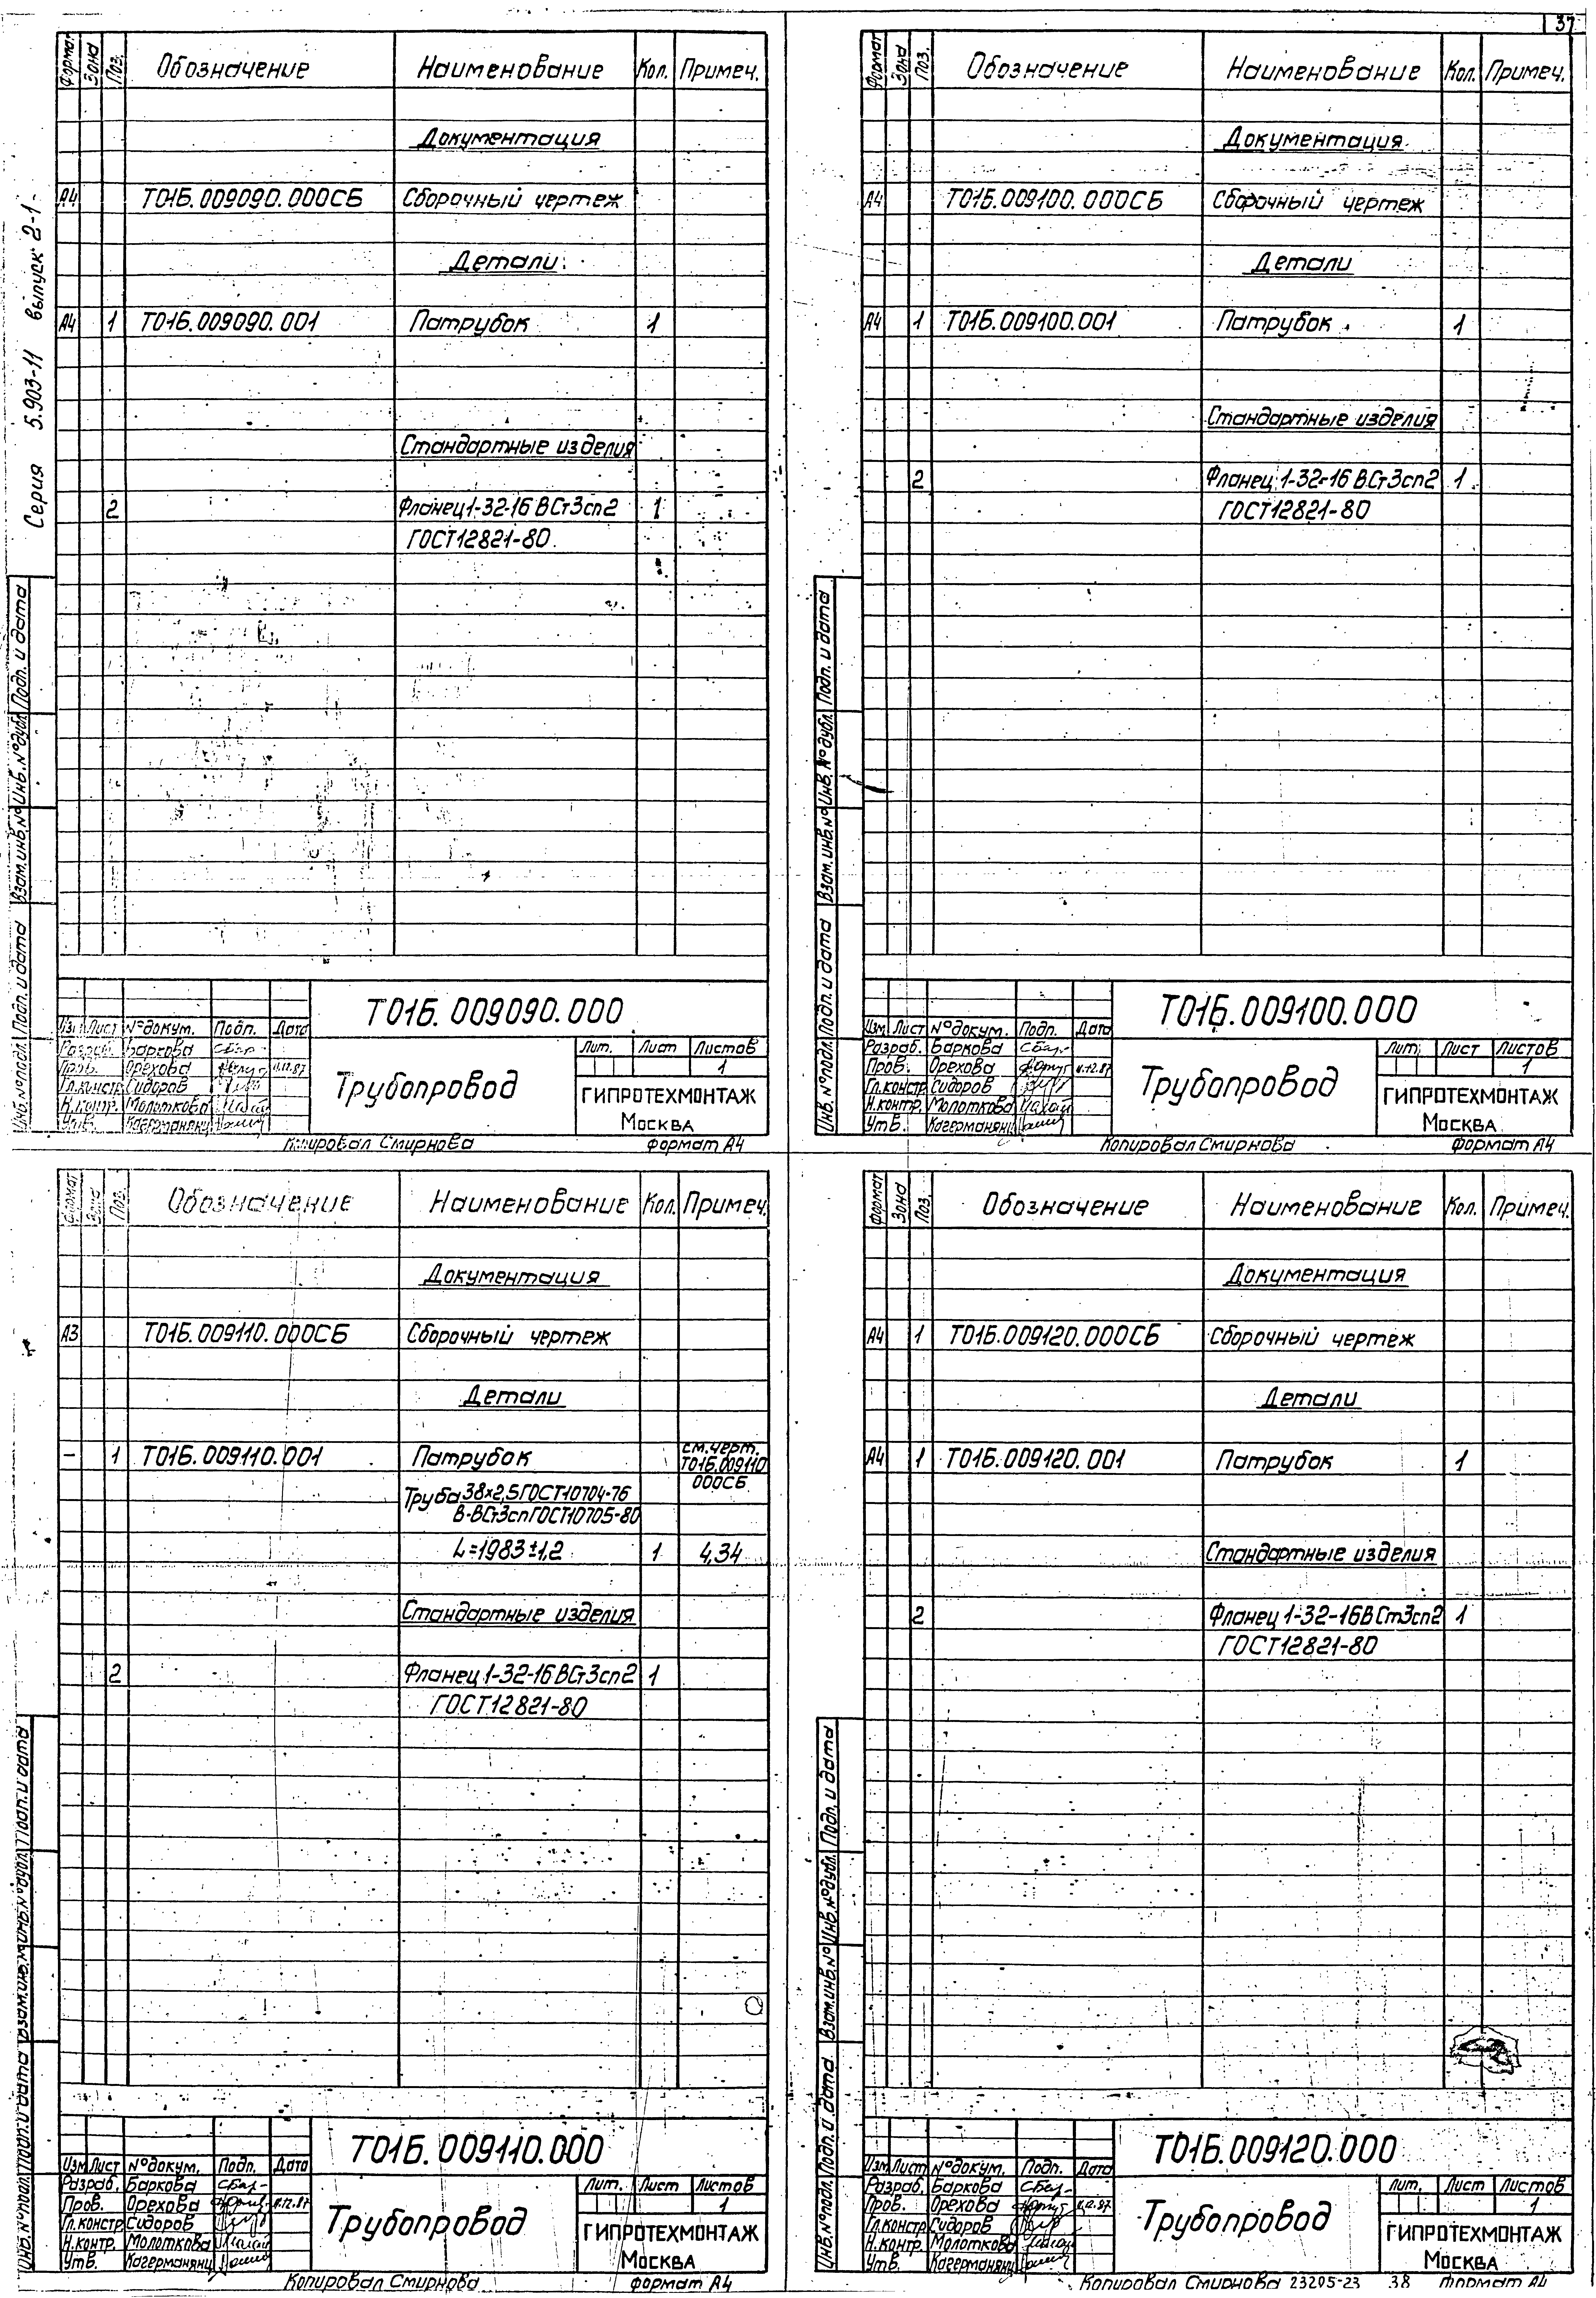 37
Серия 5.903-11 выпуск 2-1
Формат Зона Поз. Обозначение Наименование Кол. Примеч.
Документация
А4 Т01Б.009090.000СБ Сборочный чертеж
Детали
А4 1 Т01Б.009090.001 Патрубок 1
Стандартные изделия
2 Фланец 1-32-16 ВСт3сп2 1
ГОСТ 12821-80
Инв. № подл. Подп. и дата Взам. инв. № Инв. № дубл. Подп. и дата
Т01Б.009090.000
Изм Лист № докум. Подп. Дата
Разраб. Баркова
Пров. Орехова 11.12.87
Гл.констр Сидоров
Н.контр. Молоткова
Утв. Кагерманянц
Трубопровод
Лит. Лист Листов
1
ГИПРОТЕХМОНТАЖ
Москва
Копировал Смирнова формат А4
Формат Зона Поз. Обозначение Наименование Кол. Примеч.
Документация
А4 Т01Б.009100.000СБ Сборочный чертеж
Детали
А4 1 Т01Б.009100.001 Патрубок 1
Стандартные изделия
2 Фланец 1-32-16 ВСт3сп2 1
ГОСТ 12821-80
Инв. № подл. Подп. и дата Взам. инв. № Инв. № дубл. Подп. и дата
Т01Б.009100.000
Изм Лист № докум. Подп. Дата
Разраб. Баркова
Пров. Орехова 11.12.87
Гл.констр Сидоров
Н.контр. Молоткова
Утв. Кагерманянц
Трубопровод
Лит. Лист Листов
1
ГИПРОТЕХМОНТАЖ
Москва
Копировал Смирнова формат А4
Формат Зона Поз. Обозначение Наименование Кол. Примеч.
Документация
А3 Т01Б.009110.000СБ Сборочный чертеж
Детали
– 1 Т01Б.009110.001 Патрубок см.черт.
Т01Б.009110
000СБ
Труба 38×2,5 ГОСТ 10704-76
В-ВСт3сп ГОСТ 10705-80
L=1983±1,2 1 4,34
Стандартные изделия
2 Фланец 1-32-16 ВСт3сп2 1
ГОСТ 12821-80
Инв. № подл. Подп. и дата Взам. инв. № Инв. № дубл. Подп. и дата
Т01Б.009110.000
Изм Лист № докум. Подп. Дата
Разраб. Баркова
Пров. Орехова 11.12.87
Гл.констр Сидоров
Н.контр. Молоткова
Утв. Кагерманянц
Трубопровод
Лит. Лист Листов
1
ГИПРОТЕХМОНТАЖ
Москва
Копировал Смирнова формат А4
Формат Зона Поз. Обозначение Наименование Кол. Примеч.
Документация
А4 1 Т01Б.009120.000СБ Сборочный чертеж
Детали
А4 1 Т01Б.009120.001 Патрубок 1
Стандартные изделия
2 Фланец 1-32-16 ВСт3сп2 1
ГОСТ 12821-80
Инв. № подл. Подп. и дата Взам. инв. № Инв. № дубл. Подп. и дата
Т01Б.009120.000
Изм Лист № докум. Подп. Дата
Разраб. Баркова
Пров. Орехова 11.12.87
Гл.констр Сидоров
Н.контр. Молоткова
Утв. Кагерманянц
Трубопровод
Лит. Лист Листов
1
ГИПРОТЕХМОНТАЖ
Москва
Копировал Смирнова 23205-23 38 формат А4